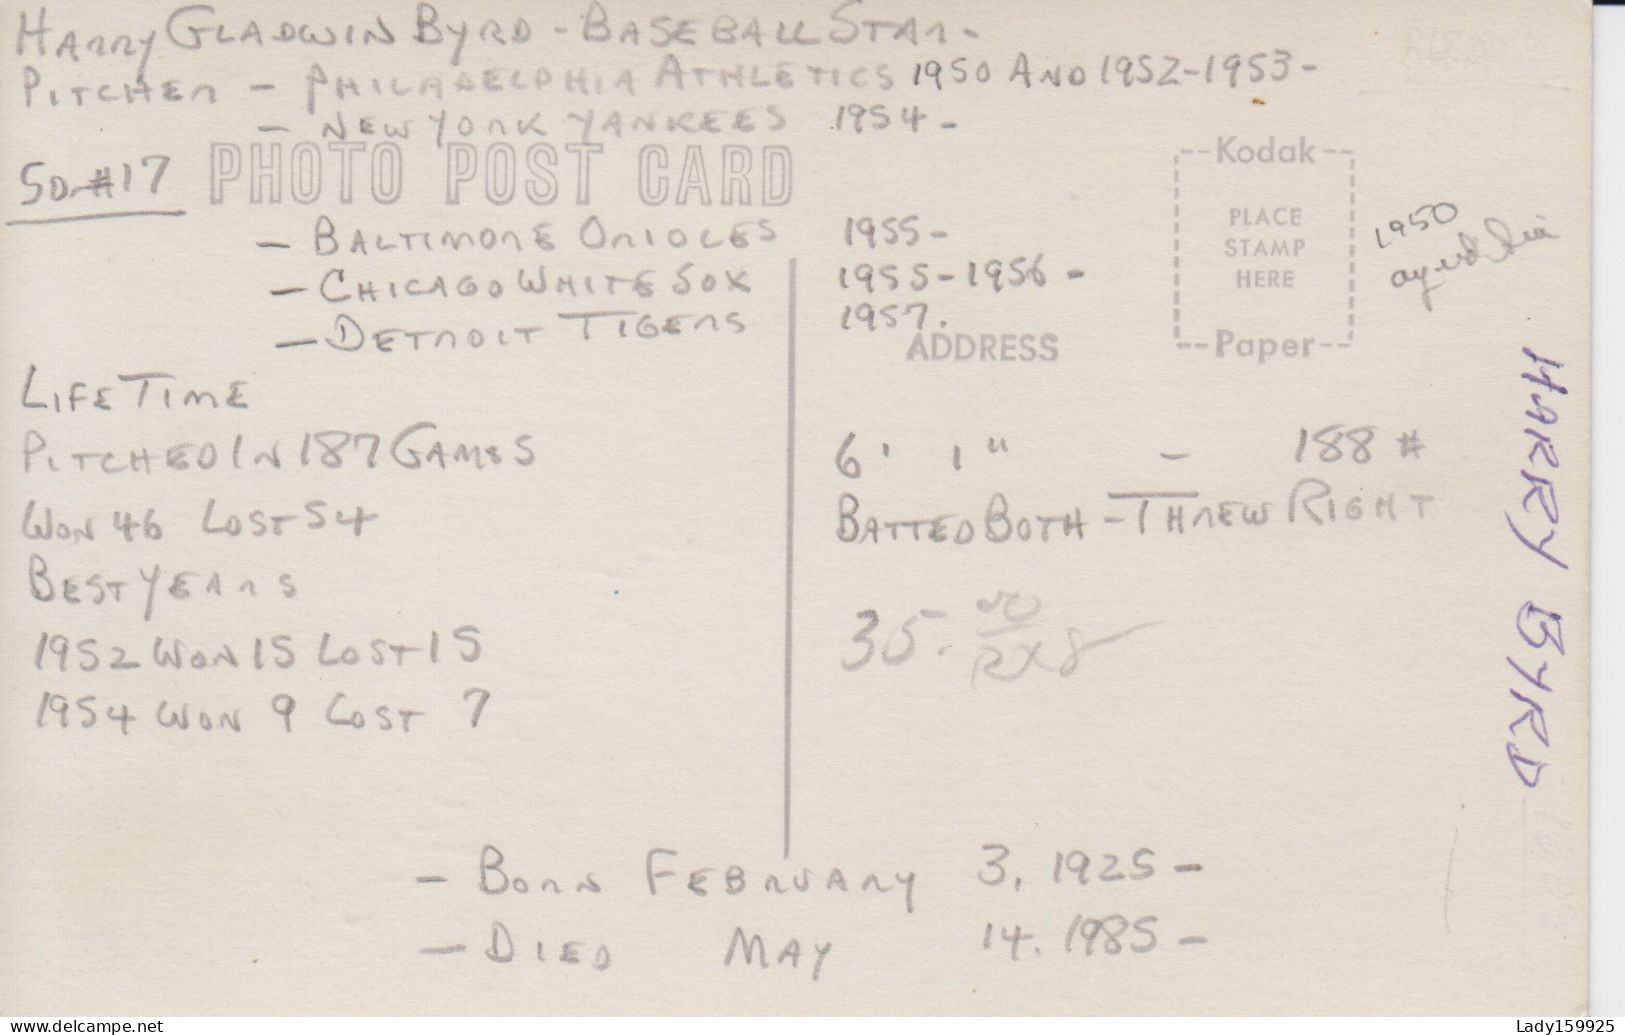 HARRY GLADWIN BYRD - BASEBALL STAR -
PITCHER - PHILADELPHIA ATHLETICS 1950 AND 1952-1953 -
- NEW YORK YANKEES 1954 -
#17
PHOTO POST CARD
- BALTIMORE ORIOLES 1955 -
- CHICAGO WHITE SOX 1955-1956 -
- DETROIT TIGERS 1957.
ADDRESS
--Kodak--
PLACE
STAMP
HERE
--Paper--
1950
LIFE TIME
PITCHED IN 187 GAMES
WON 46 LOST 54
BEST YEARS
1952 WON 15 LOST 15
1954 WON 9 LOST 7
6' 1" - 188 #
BATTED BOTH - THREW RIGHT
35.00
RX8
HARRY BYRD
- BORN FEBRUARY 3, 1925 -
- DIED MAY 14. 1985 -
www.delcampe.net
Lady159925